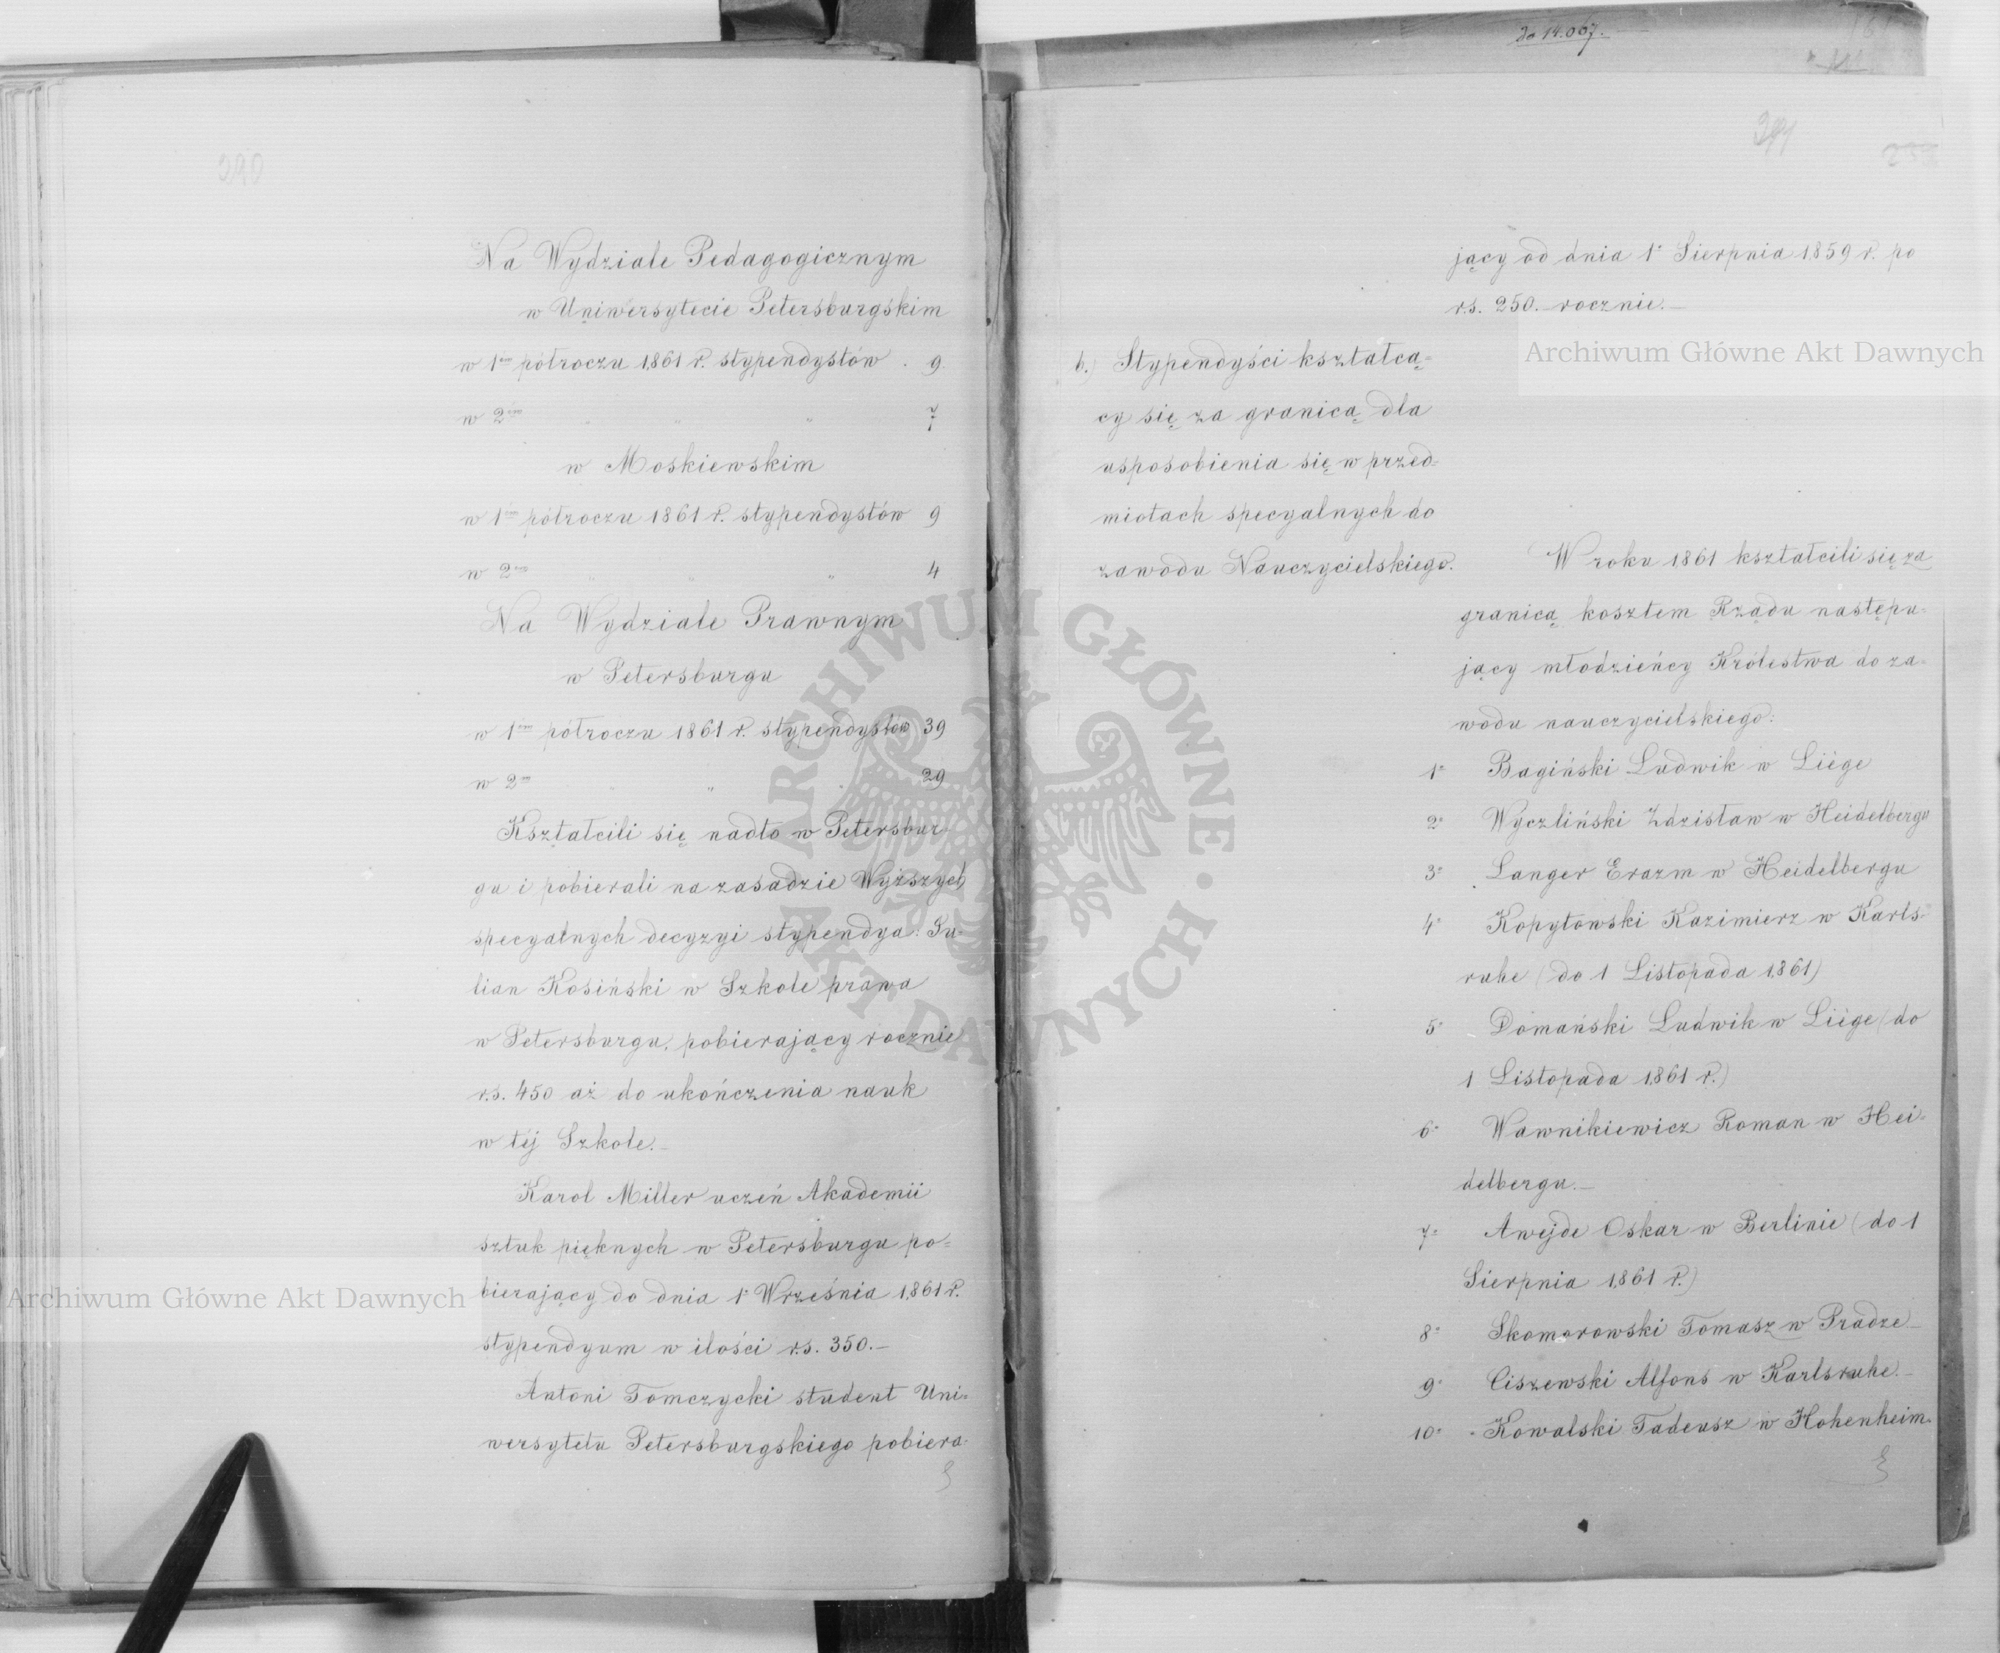 290
Na Wydziale Pedagogicznym
w Uniwersytecie Petersburgskim
w 1ém półroczu 1861 r. stypendystów . 9.
w 2ém " " " 7
w Moskiewskim
w 1ém półroczu 1861 r. stypendystów 9
w 2ém " " " 4
Na Wydziale Prawnym
w Petersburgu
w 1ém półroczu 1861 r. stypendystów 39
w 2ém " " " 29
Kształcili się nadto w Petersbur-
gu i pobierali na zasadzie Wyższych
specyalnych decyzyi stypendya: Ju-
lian Kosiński w Szkole prawa
w Petersburgu, pobierający rocznie
r.s. 450 aż do ukończenia nauk
w téj Szkole.—
Karol Miller uczeń Akademii
sztuk pięknych w Petersburgu po=
bierający do dnia 1° Września 1861 r.
stypendyum w ilości r.s. 350.—
Antoni Tomczycki student Uni=
wersytetu Petersburgskiego pobiera-
do 14.007.
291
jący od dnia 1° Sierpnia 1859 r. po
r.s. 250. rocznie.—
b.) Stypendyści kształcą=
cy się za granicą dla
usposobienia się w przed=
miotach specyalnych do
zawodu Nauczycielskiego.
W roku 1861 kształcili się za
granicą kosztem Rządu następu=
jący młodzieńcy Królestwa do za-
wodu nauczycielskiego:
1° Bagiński Ludwik w Liége
2° Wyczliński Zdzisław w Heidelbergu
3° Langer Erazm w Heidelbergu
4° Kopytowski Kazimierz w Karls-
ruhe (do 1 Listopada 1861)
5° Domański Ludwik w Liége (do
1 Listopada 1861 r.)
6° Wawnikiewicz Roman w Hei-
delbergu.—
7° Awejde Oskar w Berlinie (do 1
Sierpnia 1861 r.)
8° Skomorowski Tomasz w Pradze—
9° Ciszewski Alfons w Karlsruhe.—
10° Kowalski Tadeusz w Hohenheim.
Archiwum Główne Akt Dawnych
Archiwum Główne Akt Dawnych
ARCHIWUM GŁÓWNE AKT DAWNYCH